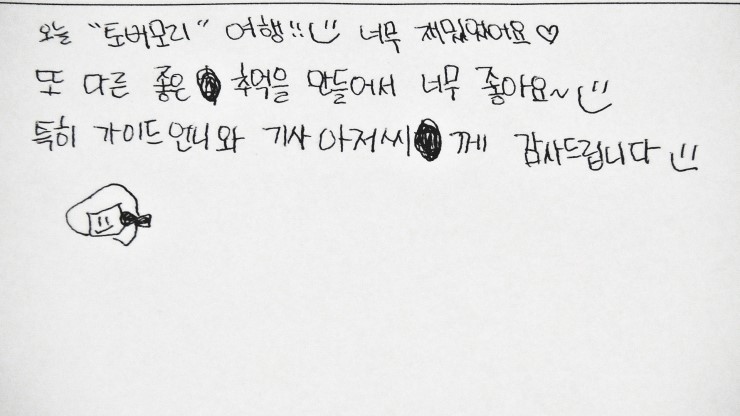 오늘 "토버모리" 여행!! 너무 재밌었어요♡
또 다른 좋은 추억을 만들어서 너무 좋아요~
특히 가이드언니와 기사아저씨께 감사드립니다